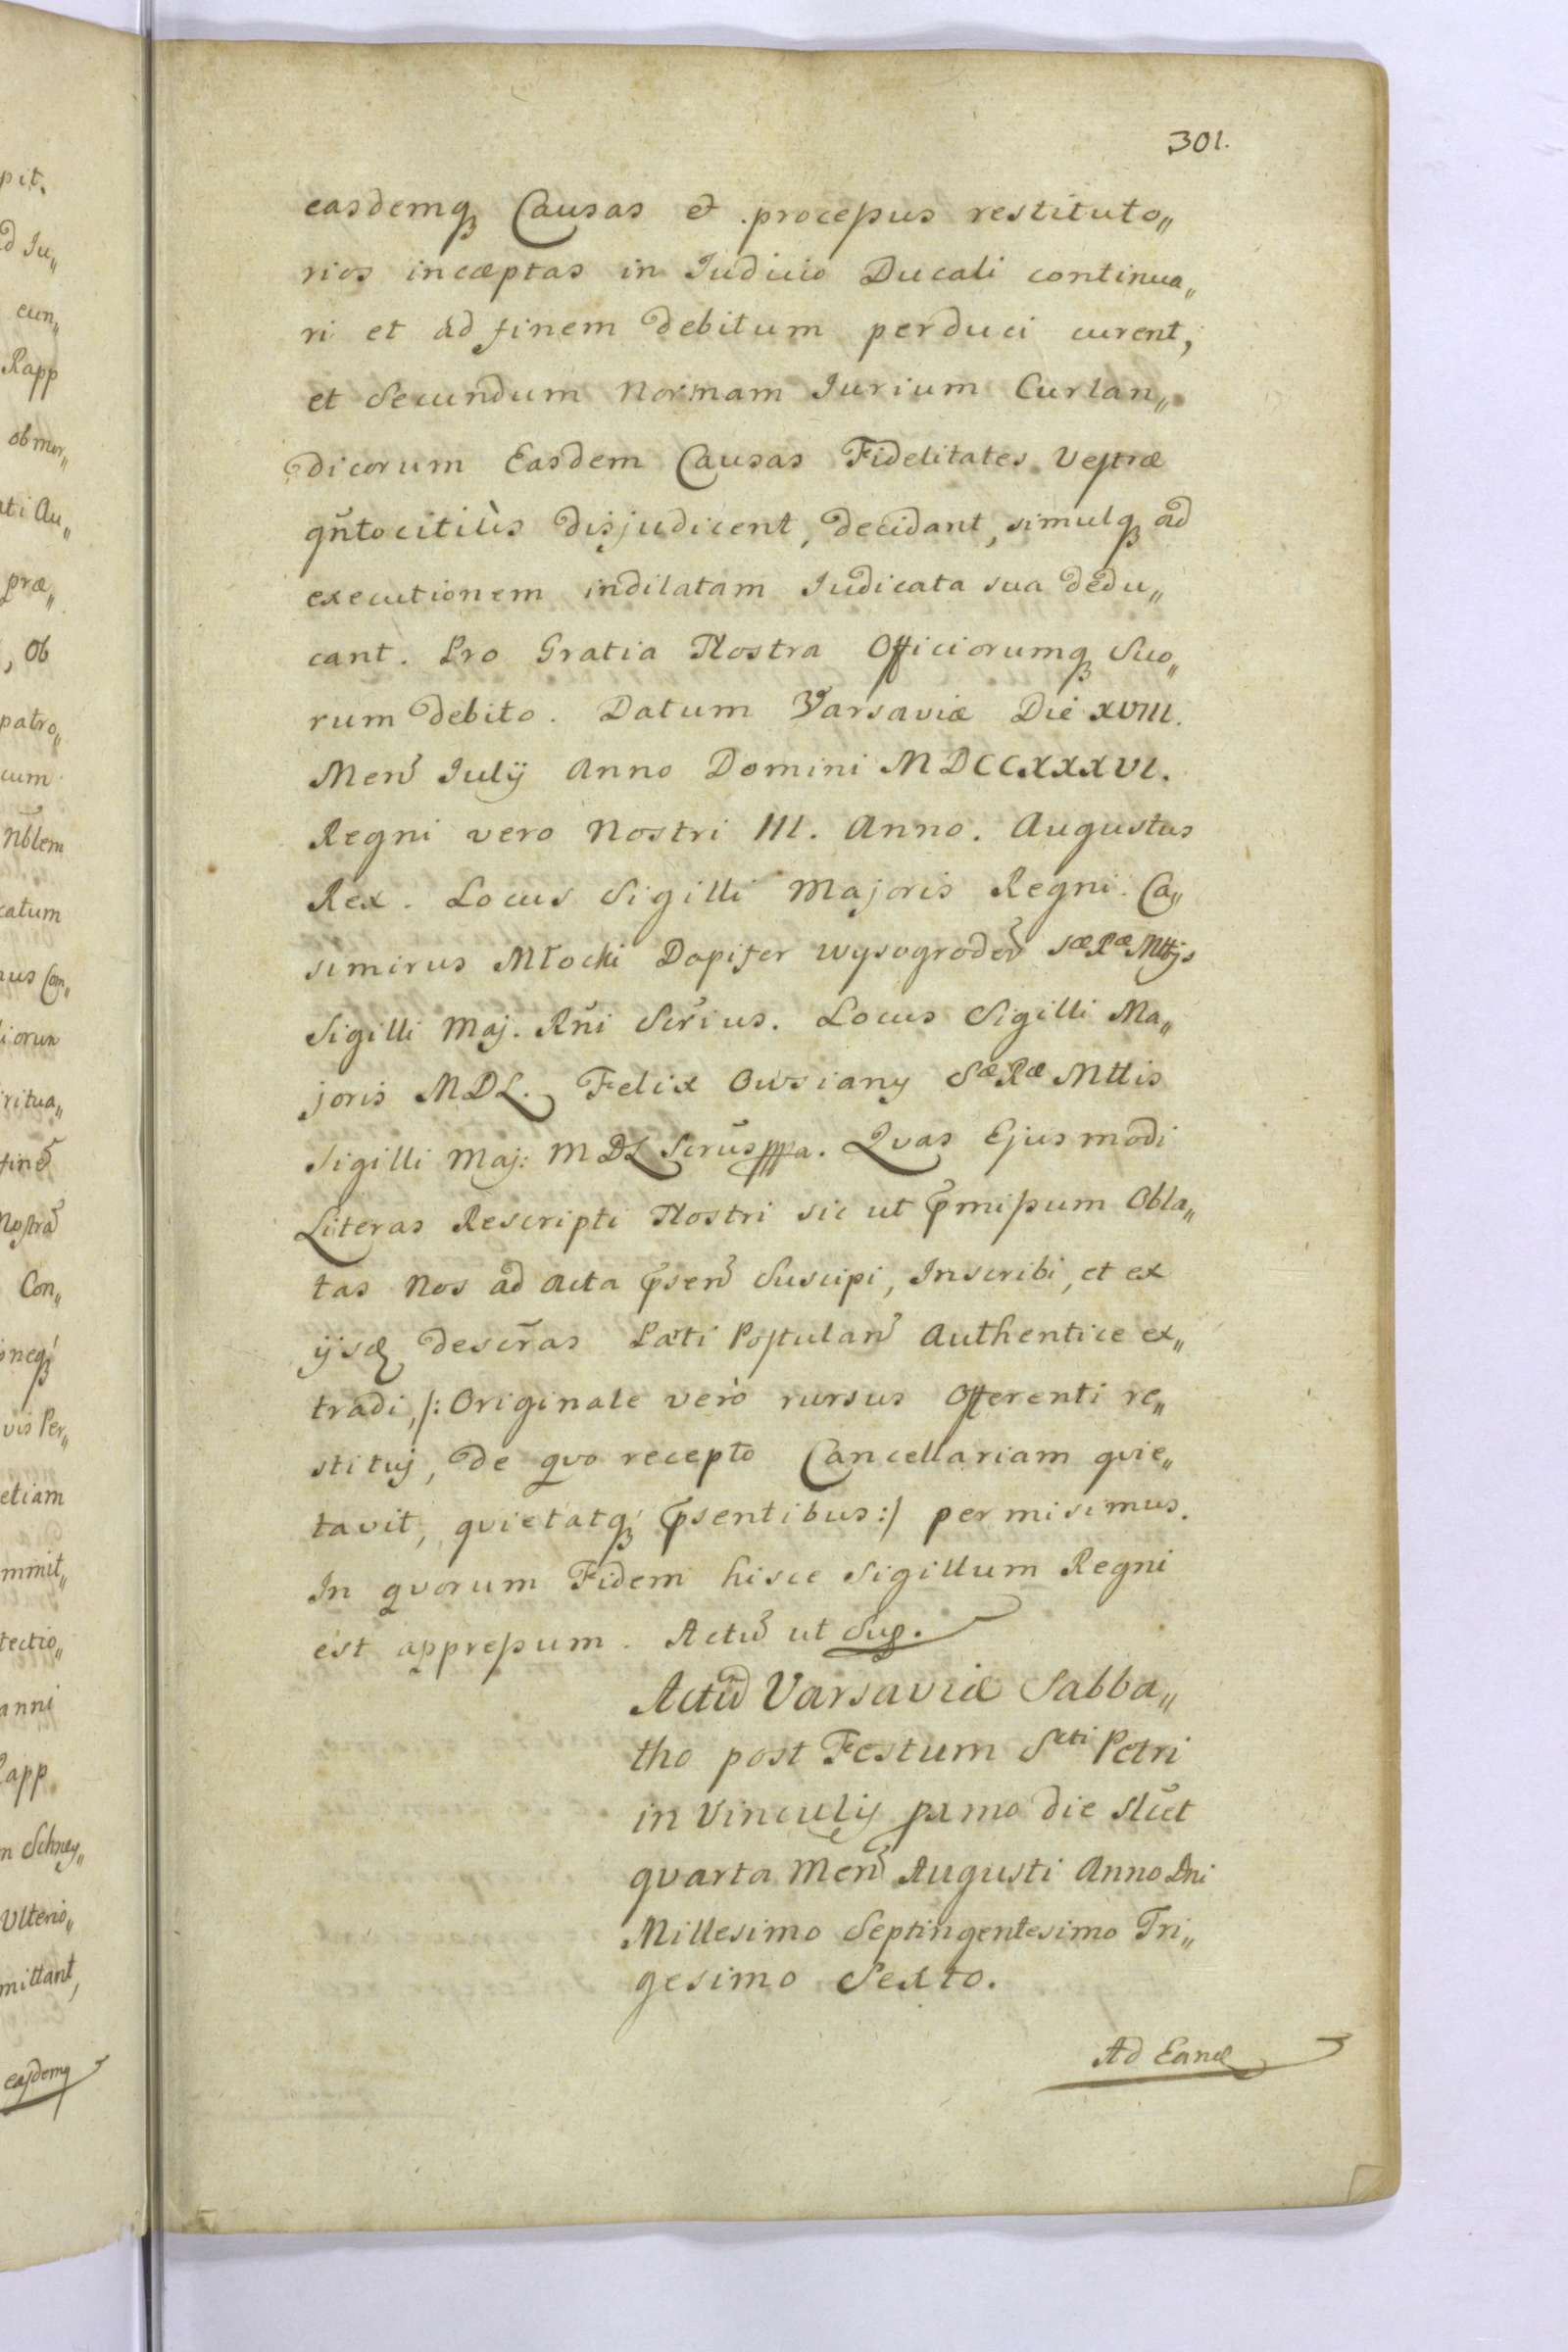 301.
easdemq́ꝫ Causas et processus restituto„
rios incæptas in Iudicio Ducali continua„
ri et ad finem debitum perduci curent,
et Secundum Normam Iurium Curlan„
dicorum Easdem Causas Fidelitates Vestræ
qñtocitiùs disjudicent, decidant, simulqꝫ ad
executionem indilatam Iudicata sua dedu„
cant. Pro Gratia Nostra Officiorumqꝫ Suo„
rum debito. Datum Varsaviæ Die XVIII.
Men̄ Iulij Anno Domini MDCCXXXVI.
Regni vero Nostri III. Anno. Augustus
Rex. Locus Sigilli Majoris Regni. Ca„
simirus Młocki Dapifer Wysogrodeñ Sæ Ræ Mttjs
Sigilli Maj. Rñi Scr̃ius. Locus Sigilli Ma„
joris MDL. Felix Owsiany Sæ Ræ Mttis
Sigilli Maj: MDL Scrũs mppa. Qvas Ejusmodi
Literas Rescripti Nostri sic ut p̄missum Obla„
tas Nos ad Acta p̄sen̄ Suscipi, Inscribi, et ex
ijsd̄ descr̃as Parti Postulan̄ Authentice ex„
tradi, /: Originale verò rursus Offerenti re„
stituj, de qvo recepto Cancellariam qvie„
tavit, qvietatq́ꝫ p̄sentibus :/ permisimus.
In qvorum Fidem hisce Sigillum Regni
est appressum. Actũ ut Sup.
Actũ Varsaviæ Sabba„
tho post Festum Scti Petri
in Vinculij pr̃mo die Scl̃t
qvarta Men̄ Augusti Anno Dni
Millesimo Septingentesimo Tri„
gesimo Sexto.
Ad Eand̄
pit.
d Iu„
cun„
Rapp
ob mor„
ati Au„
præ„
, Ob
patro„
cum
Nblem
catum
nus Com„
iorun
ritua„
fine
Nostrã
Con„
oneq́ꝫ
vis Per„
etiam
mmit„
tectio„
anni
Rapp
n Schney„
Ulterio„
mittant,
easdemq